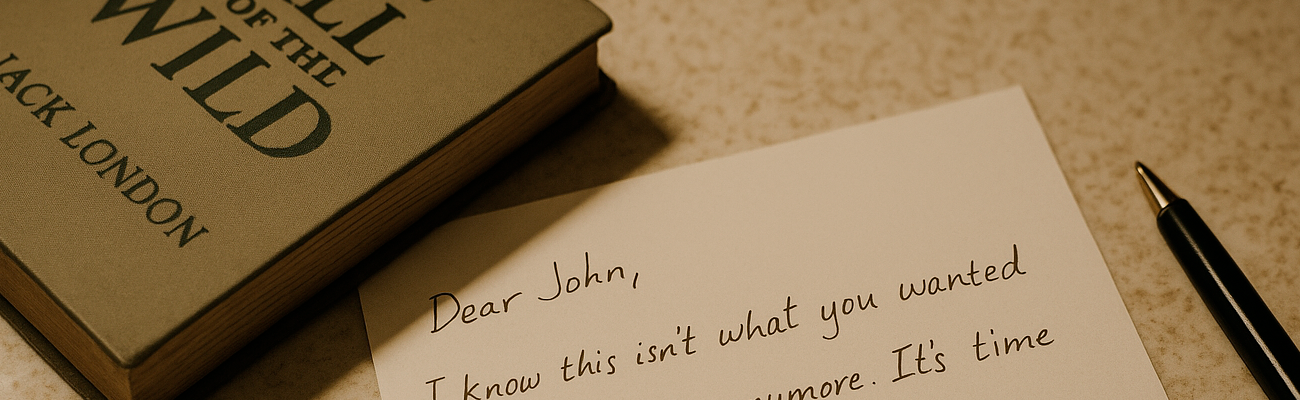 OF THE
WILD
JACK LONDON
Dear John,
I know this isn't what you wanted
It's time